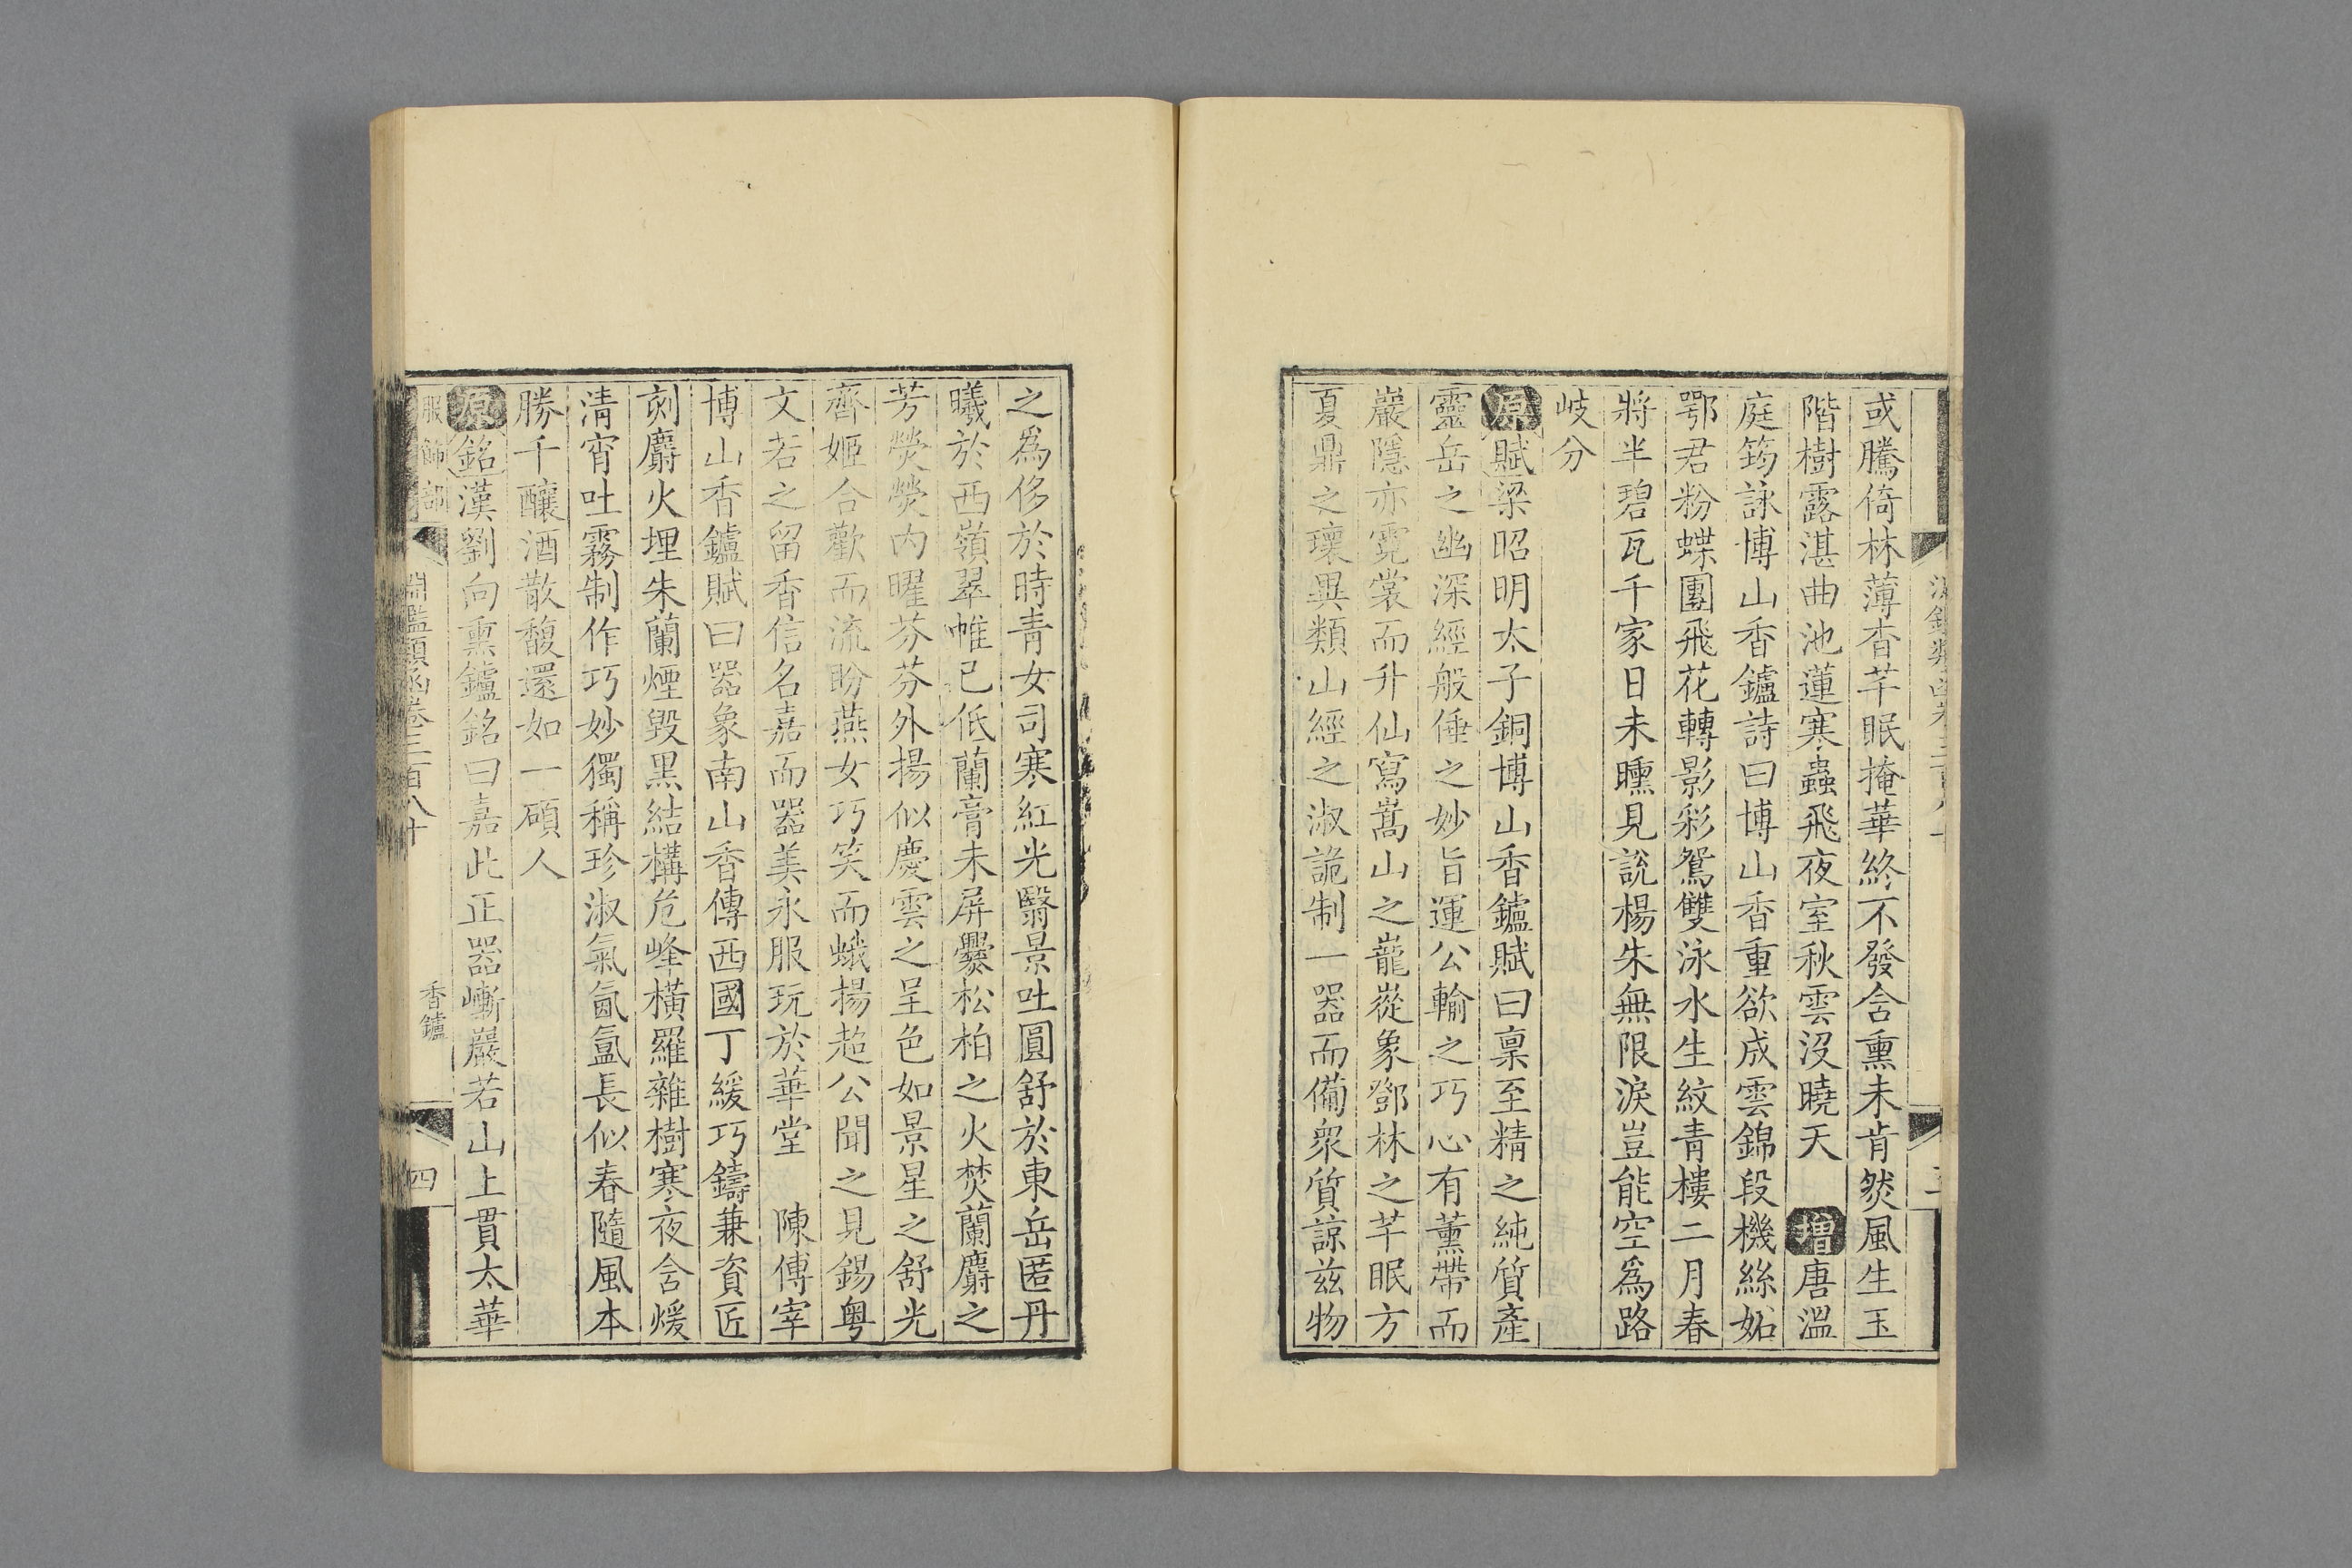 或騰倚林薄杳芊眠掩華終不發含熏未肯然風生玉
階樹露湛曲池蓮寒蟲飛夜室秋雲沒曉天 增唐溫
庭筠詠博山香鑪詩曰博山香重欲成雲錦段機絲妬
鄂君粉蝶團飛花轉影彩鴛雙泳水生紋青樓二月春
將半碧瓦千家日未曛見說楊朱無限淚豈能空爲路
岐分
原賦梁昭明太子銅博山香鑪賦曰禀至精之純質產
靈岳之幽深經般倕之妙旨運公輸之巧心有薰帶而
巖隱亦霓裳而升仙寫嵩山之巃嵷象鄧林之芊眠方
夏鼎之瓌異類山經之淑詭制一器而備衆質諒兹物
之爲侈於時青女司寒紅光翳景吐圓舒於東岳匿丹
曦於西嶺翠帷已低蘭膏未屏爨松柏之火焚蘭麝之
芳熒熒內曜芬芬外揚似慶雲之呈色如景星之舒光
齊姬合歡而流盼燕女巧笑而蛾揚超公聞之見錫粵
文若之留香信名嘉而器美永服玩於華堂 陳傅宰
博山香鑪賦曰器象南山香傳西國丁緩巧鑄兼資匠
刻麝火埋朱蘭煙毀黑結構危峰橫羅雜樹寒夜含煖
清宵吐霧制作巧妙獨稱珍淑氣氤氳長似春隨風本
勝千釀酒散馥還如一碩人
原銘漢劉向熏鑪銘曰嘉此正器嶄巖若山上貫太華
服飾部 淵鑑類函卷三百八十 香鑪 四